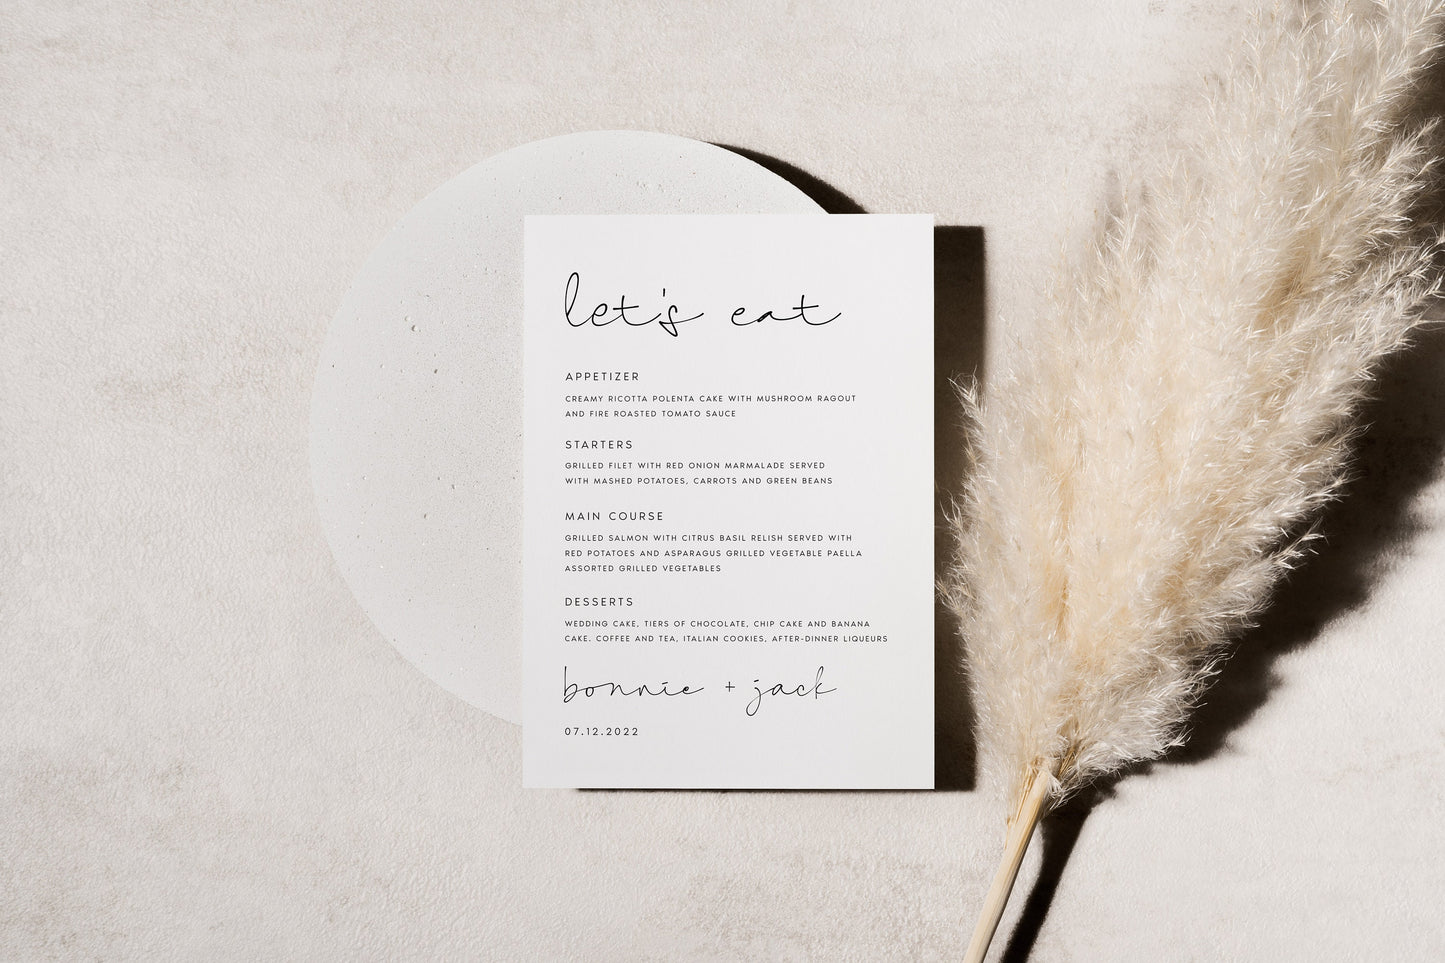 let's eat
APPETIZER
CREAMY RICOTTA POLENTA CAKE WITH MUSHROOM RAGOUT
AND FIRE ROASTED TOMATO SAUCE
STARTERS
GRILLED FILET WITH RED ONION MARMALADE SERVED
WITH MASHED POTATOES, CARROTS AND GREEN BEANS
MAIN COURSE
GRILLED SALMON WITH CITRUS BASIL RELISH SERVED WITH
RED POTATOES AND ASPARAGUS GRILLED VEGETABLE PAELLA
ASSORTED GRILLED VEGETABLES
DESSERTS
WEDDING CAKE, TIERS OF CHOCOLATE, CHIP CAKE AND BANANA
CAKE. COFFEE AND TEA, ITALIAN COOKIES, AFTER-DINNER LIQUEURS
bonnie + jack
07.12.2022